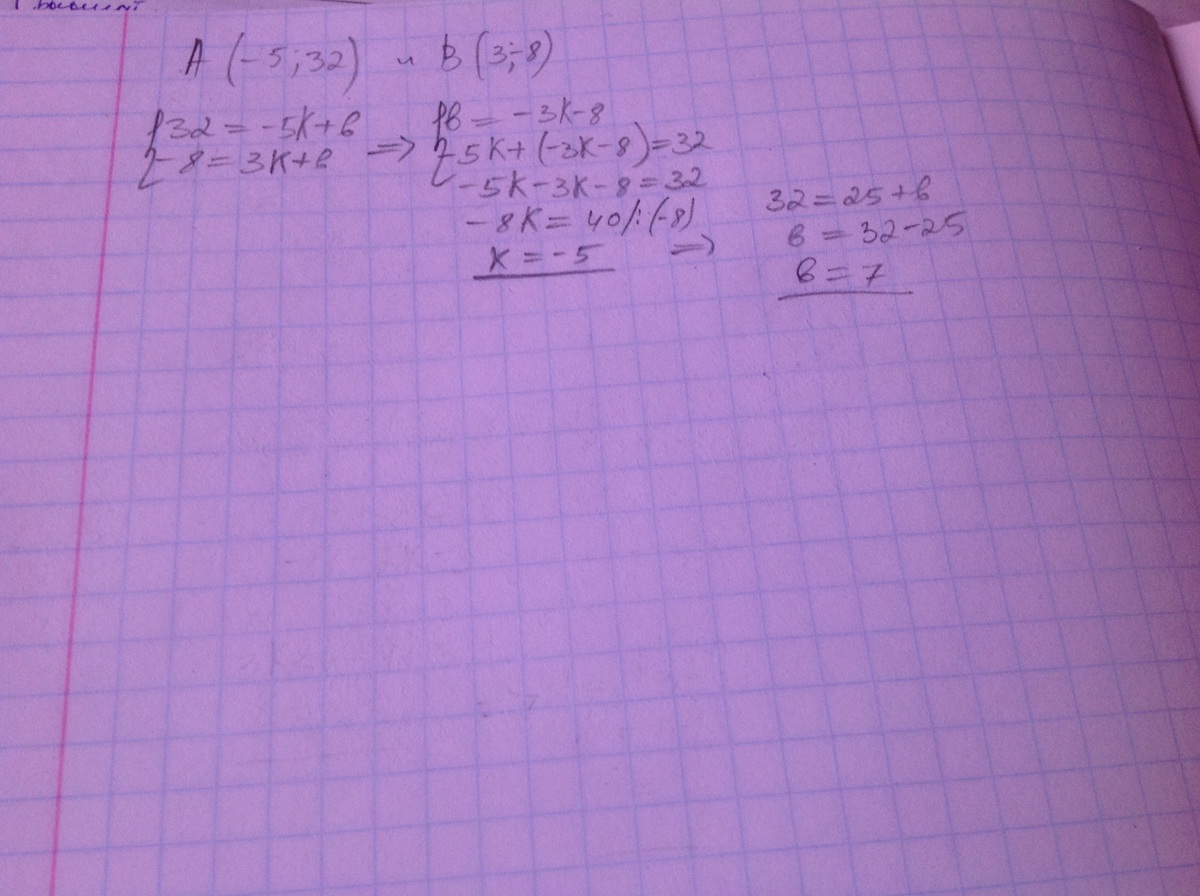 A (-5; 32) и B (3; -8)
{32 = -5k+в
-8 = 3k+в
=>
{в = -3k-8
-5k+(-3k-8)=32
-5k-3k-8=32
-8k= 40/:(-8)
k = -5
=>
32=25+в
в = 32-25
в = 7